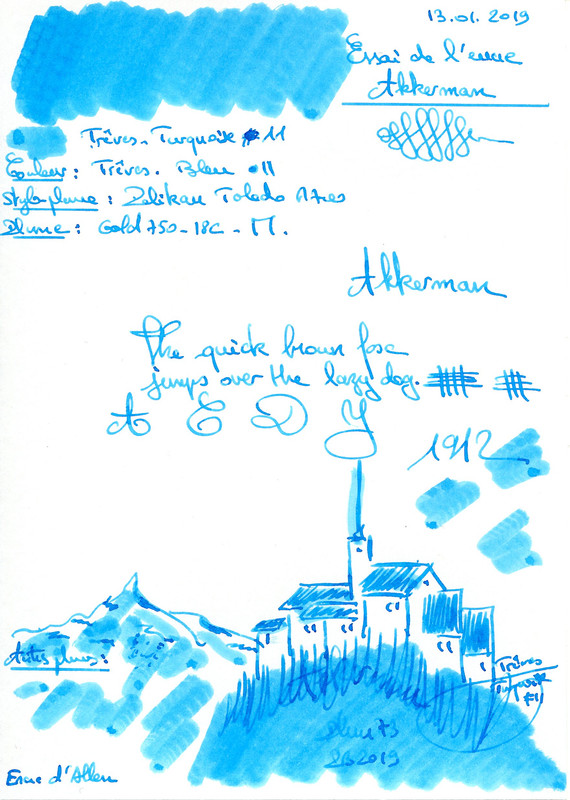 13.01.2019
Essai de l'encre
Akkerman
Trêves-Turquoise #11
Couleur : Trêves. Bleu 11
Stylo-plume : Pelikan Toledo
Plume : Gold 750-18C - M.
Akkerman
The quick brown fox
jumps over the lazy dog.
A E D Y
1912
Autres plumes :
Trêves
Turquoise
#11
2019
Encre d'Allen